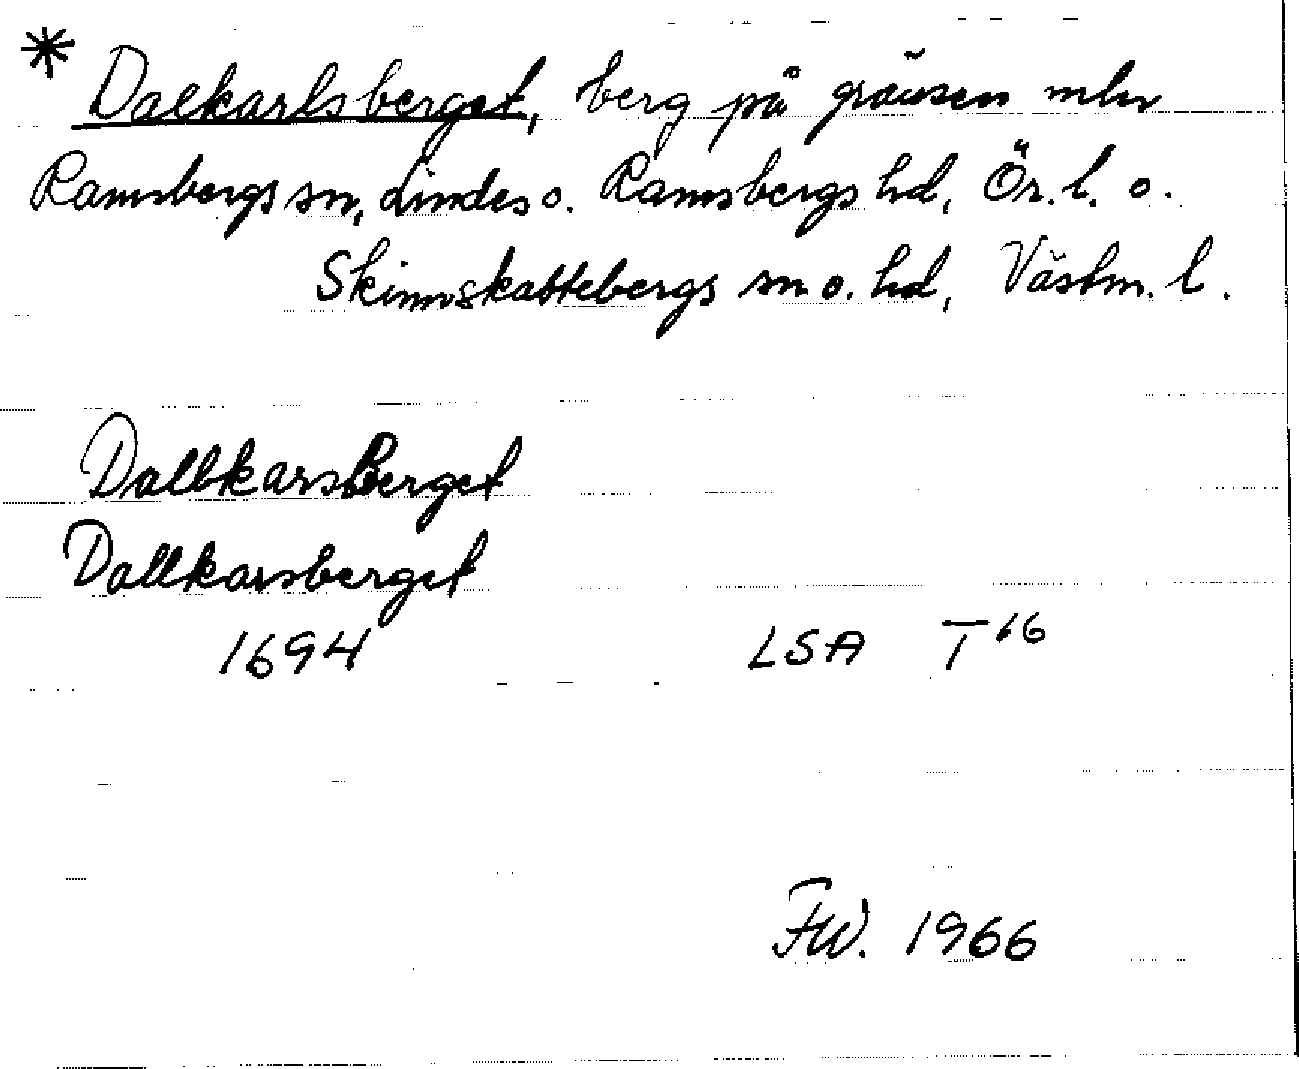 * Dalkarlsberget, berg på gränsen mln
Ramsbergs sn, Lindes o. Ramsbergs hd, Ör. l. o.
Skinnskattebergs sn o. hd, Västm. l.
DallkarsBerget
Dallkarsberget
1694 LSA T 16
FW. 1966